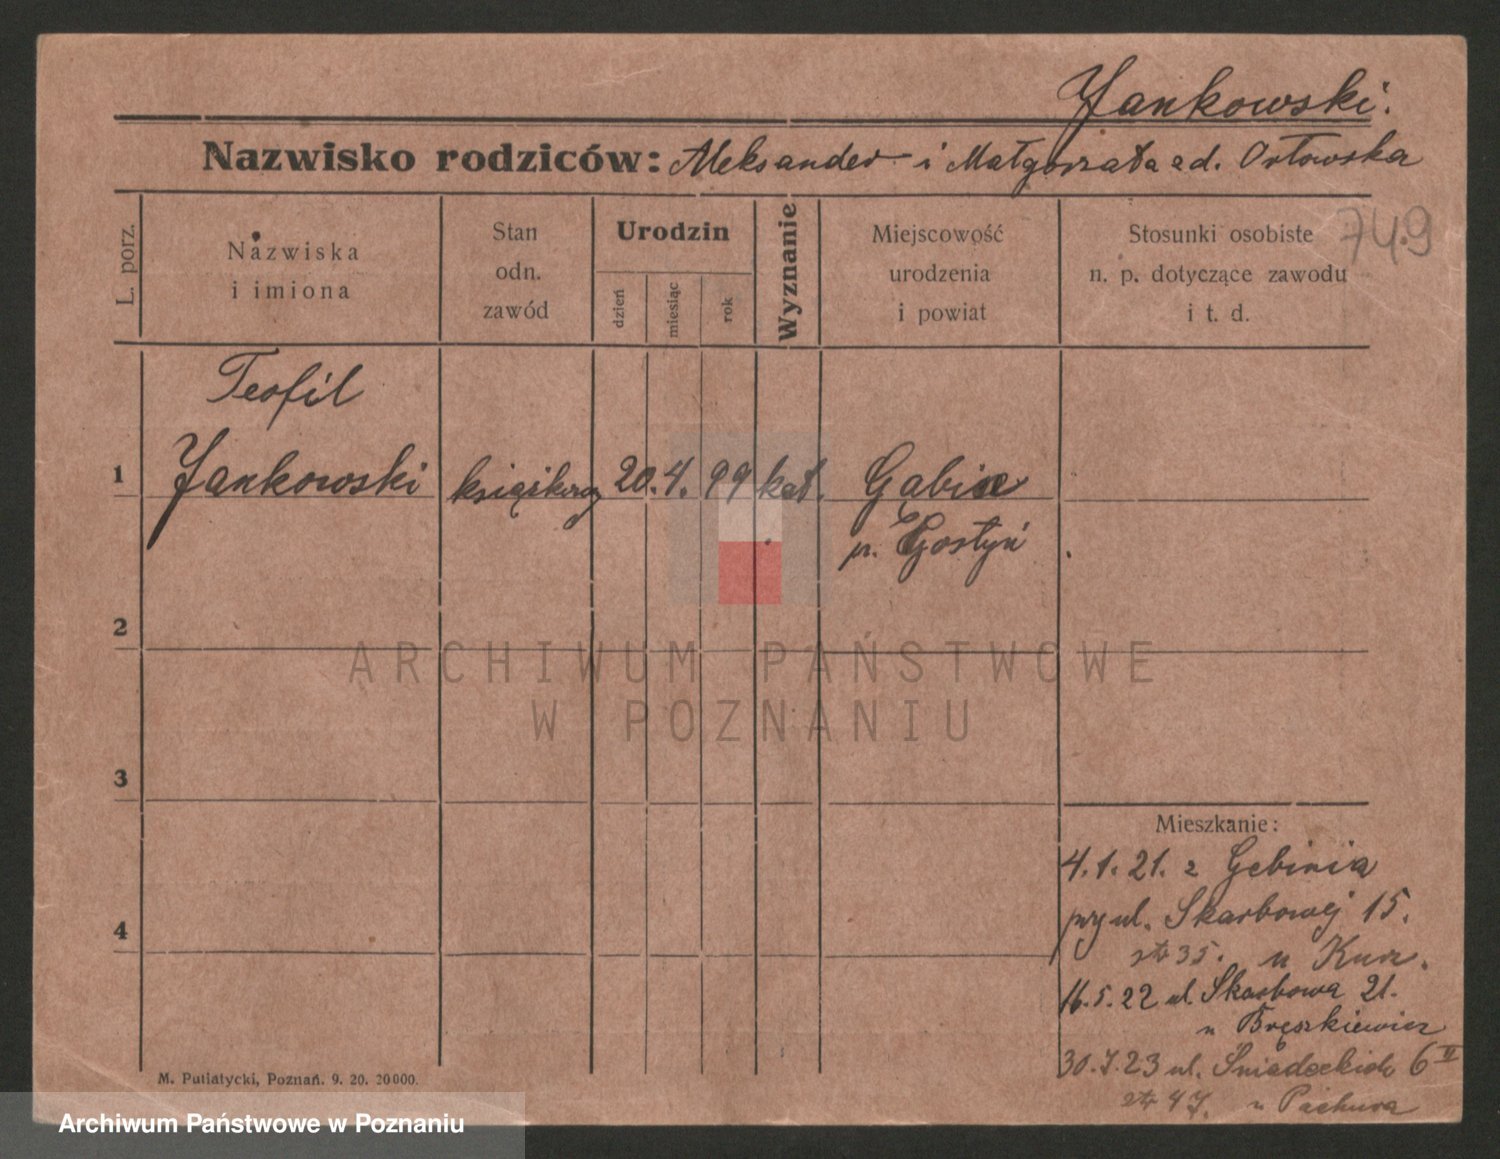 Jankowski.
Nazwisko rodziców: Aleksander i Małgorzata zd. Orłowska
749
L. porz.
Nazwiska
i imiona
Stan
odn.
zawód
Urodzin
dzień
miesiąc
rok
Wyznanie
Miejscowość
urodzenia
i powiat
Stosunki osobiste
n. p. dotyczące zawodu
i t. d.
Teofil
1 Jankowski 20. 4. 99 kat.
p. Gostyń
2
ARCHIWUM PAŃSTWOWE
W POZNANIU
3
Mieszkanie:
4.1.21. z Gębinia
przy ul. Skarbowej 15.
str 35. u Kurz.
4
16.5.22 ul. Skarbowa 21.
u Bręszkiewicz
30.7.23 ul. Śniadeckich 6 II
str 47. u Pachura
M. Putiatycki, Poznań. 9. 20. 20000.
Archiwum Państwowe w Poznaniu